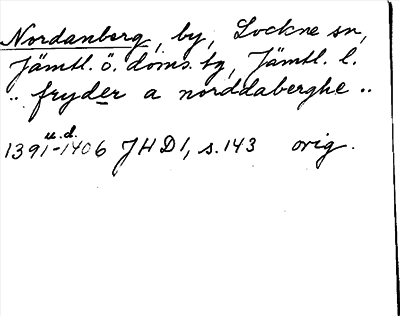 Nordanberg, by, Lockne sn,
Jämtl. ö. doms. tg, Jämtl. l.
.. fryder a norddaberghe ..
u. d.
1391-1406 JHD 1, s. 143 orig.